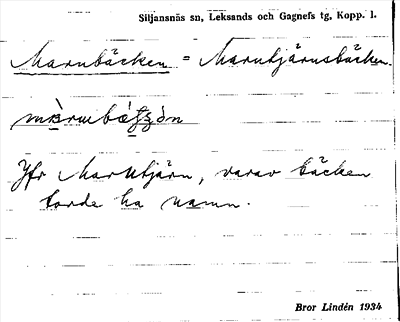 Siljansnäs sn, Leksands och Gagnefs tg, Kopp. l.
Marnbäcken = Marntjärnsbäcken.
Jfr Marntjärn, varav bäcken
torde ha namn.
Bror Lindén 1934